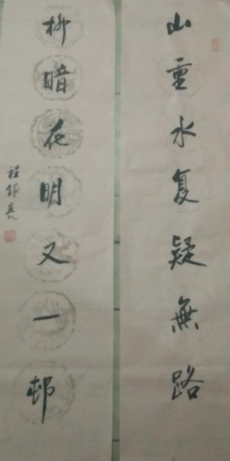 山重水复疑無路
柳暗花明又一邨